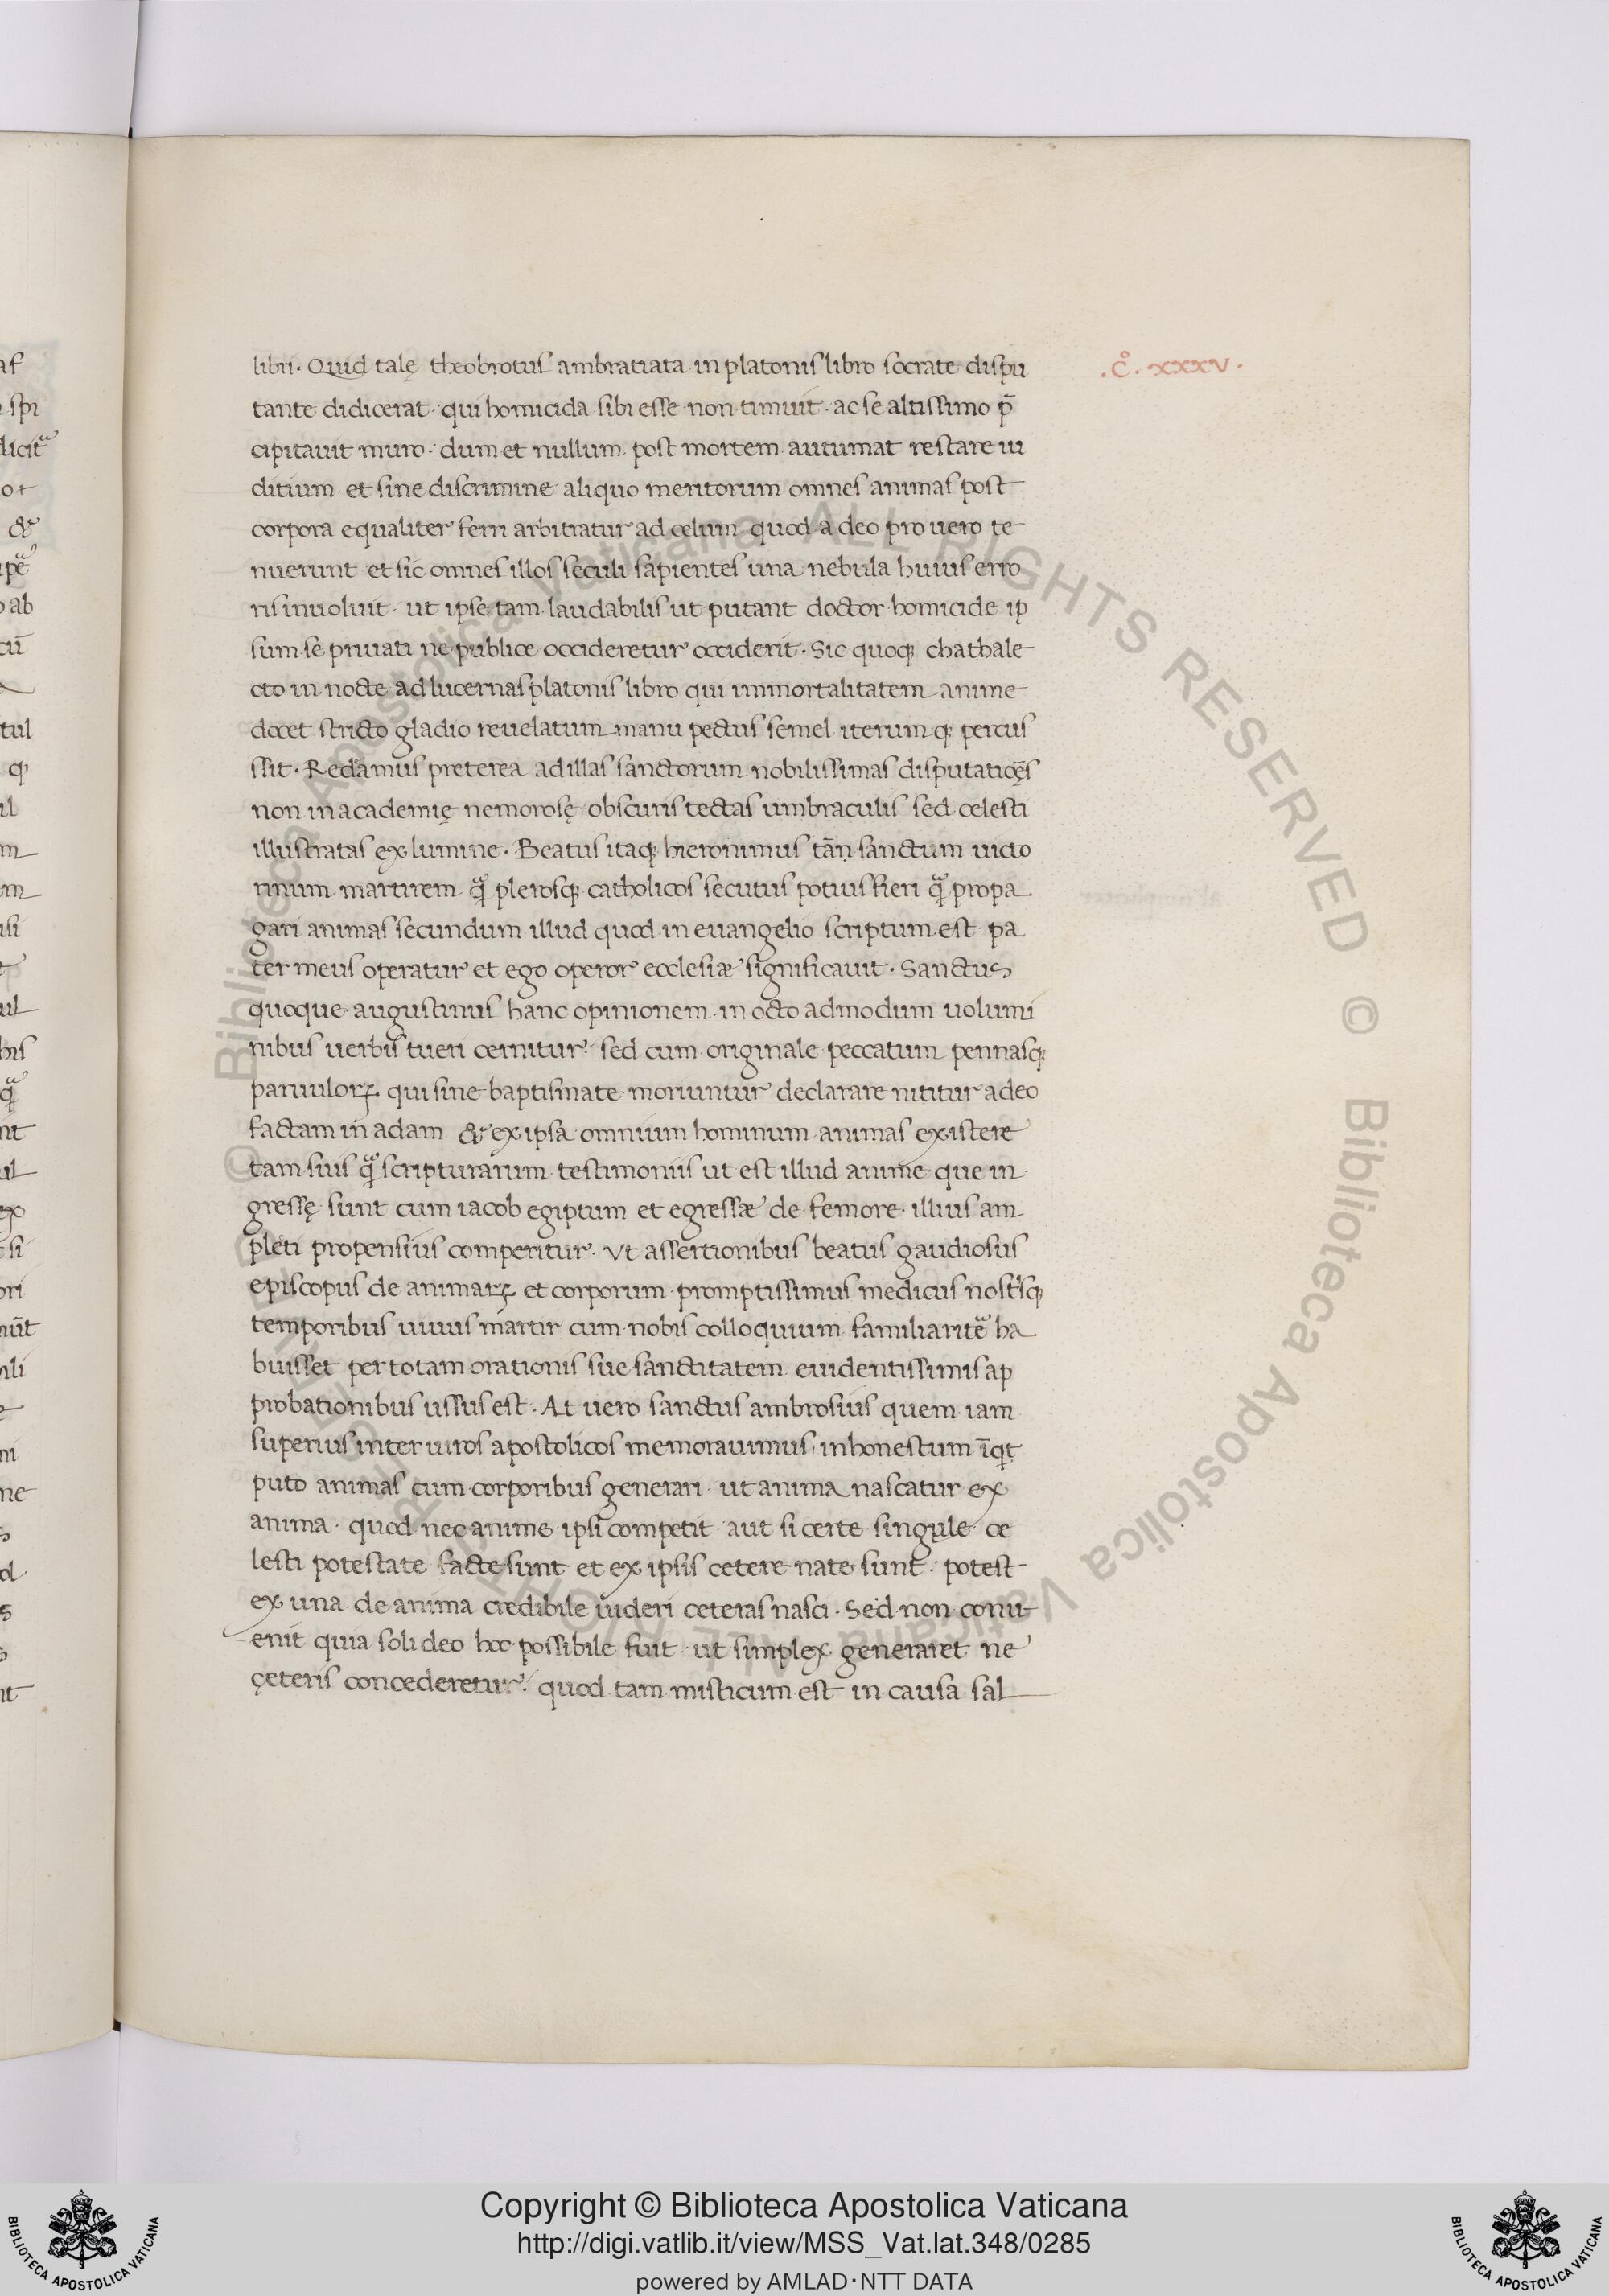 libri. Quid talę theobrotus ambratiata in platonis libro socrate dispu
.c̊. xxxv.
tante didicerat. qui homicida sibi esse non timuit. ac se altissimo p̄
cipitauit muro. dum et nullum post mortem autumat restare iu
ditium et sine discrimine aliquo meritorum omnes animas post
corpora equaliter ferri arbitratur ad celum quod a deo pro uero te
nuerunt et sic omnes illos seculi sapientes una nebula huius erro
ris inuoluit. ut ipse tam laudabilis ut putant doctor homicide ip
sum se priuati ne publice occideretur occiderit. Sic quoq; chathale
cto in nocte ad lucernas platonis libro qui immortalitatem anime
docet stricto gladio reuelatum manu pectus semel iterum q; percus
ssit. Redamus preterea ad illas sanctorum nobilissimas disputatiōęs
non in academię nemorosę obscuris tectas umbraculis sed celesti
illustratas ex lumine. Beatus itaq; hieronimus tān sanctum uicto
rinum martirem q̄ plerosq; catholicos secutus potius fieri q̄ propa
gari animas secundum illud quod in euangelio scriptum est pa
ter meus operatur et ego operor ecclesiæ significauit. Sanctus
quoque augustinus hanc opinionem in octo admodum uolumi
nibus uerbis tueri cernitur. sed cum originale peccatum pennasq;
paruuloꝝ qui sine baptismate moriuntur declarare nititur adeo
factam in adam & ex ipsa omnium hominum animas existere
tam siuis q̄ scripturarum testimoniis ut est illud anime que in
gressę sunt cum iacob egiptum et egressæ de femore illius am
pleti propensius comperitur. Ut assertionibus beatus gaudiosus
episcopus de animaꝝ et corporum promptissimus medicus nost͛isq;
temporibus uiuus martir cum nobis colloquium familiarit̄e ha
buisset per totam orationis sue sanctitatem euidentissimis ap
probationibus ussus est. At uero sanctus ambrosius quem iam
superius inter uiros apostolicos memorauimus, inhonestum īq̄t
puto animas cum corporibus generari ut anima nascatur ex
anima. quod nec anime ipsi competit aut si certe singule ce
lesti potestate facte sunt et ex ipsis cetere nate sunt. potest
ex una de anima credibile uideri ceteras nasci. Sed non conu
enit quia soli deo hoc possibile fuit ut simplex generaret ne
çeteris concederetur. quod tam misticum est in causa sal
Copyright © Biblioteca Apostolica Vaticana
http://digi.vatlib.it/view/MSS_Vat.lat.348/0285
powered by AMLAD·NTT DATA
BIBLIOTECA APOSTOLICA VATICANA
BIBLIOTECA APOSTOLICA VATICANA
© Biblioteca Apostolica Vaticana ALL RIGHTS RESERVED
© Biblioteca Apostolica Vaticana ALL RIGHTS RESERVED